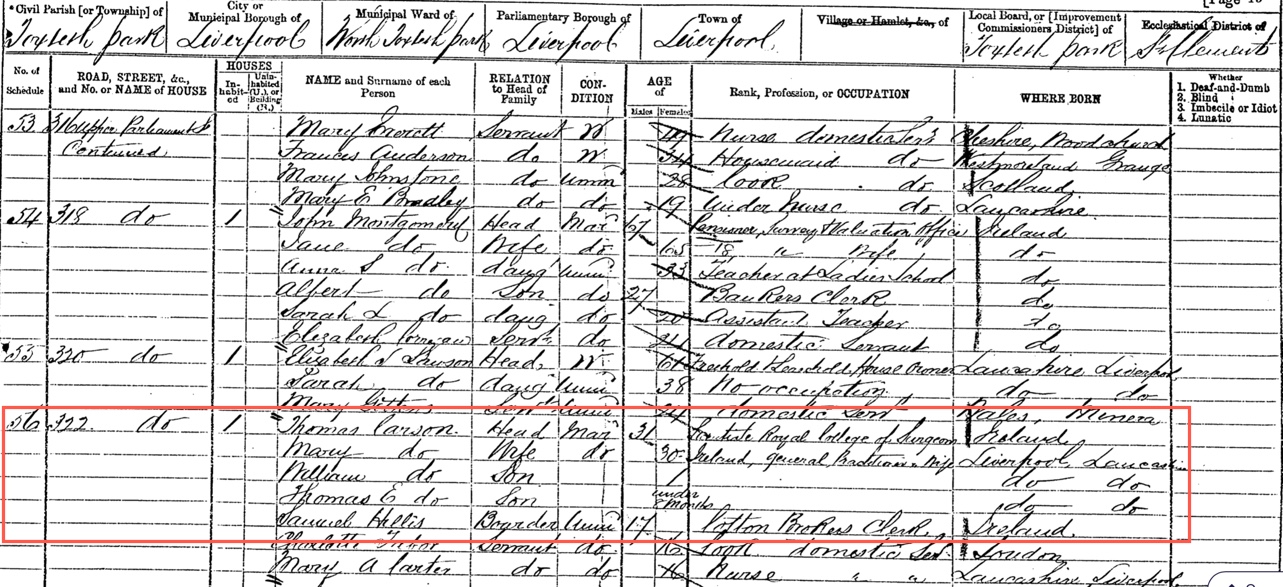 [Page 1
*Civil Parish [or Township] of City or Municipal Borough of Municipal Ward of Parliamentary Borough of Town of Village or Hamlet, &c., of Local Board, or [Improvement Commissioners District] of Ecclesiastical District of
Toxteth park Liverpool North Toxteth park Liverpool Liverpool Toxteth park St Clements
No. of Schedule ROAD, STREET, &c., and No. or NAME of HOUSE HOUSES In-habit-ed Unin-habited (U.), or Building (B.) NAME and Surname of each Person RELATION to Head of Family CON-DITION AGE of Males Females Rank, Profession, or OCCUPATION WHERE BORN Whether 1. Deaf-and-Dumb 2. Blind 3. Imbecile or Idiot 4. Lunatic
53 Upper Parliament St Mary Servant W Nurse domestic Cheshire, Woodchurch
Continued Frances Anderson do W 34 Housemaid do Westmoreland Grange
Mary Johnstone do Unm 28 Cook do Scotland
Mary E Bradley do do 19 Under Nurse do Lancashire
54 318 do 1 John Montgomery Head Mar 67 Pensioner, Survey & Valuation Office Ireland
Jane do Wife do 65 " Wife do
Anna S do daug Unm 33 Teacher at Ladies School do
Albert do Son do 27 Bankers Clerk do
Sarah L do daug do 20 Assistant Teacher do
Elizabeth Serv do 21 domestic Servant do
55 320 do 1 Elizabeth S Lawson Head W 61 Freehold Leasehold House Owner Lancashire Liverpool
Sarah do daug Unm 38 No occupation do do
Mary Serv Unm 24 domestic Serv Wales, Minera
56 322 do 1 Thomas Carson Head Mar 31 Licentiate Royal College of Surgeons Ireland
Mary do Wife do 30 Ireland, general Wife Liverpool Lancashire
William do Son 1 do do
Thomas E do Son under months do do
Samuel Hillis Boarder Unm 17 Cotton Brokers Clerk Ireland
Charlotte Servant do 16 Cook domestic Ser London
Mary A Carter do do 16 Nurse " " Lancashire Liverpool